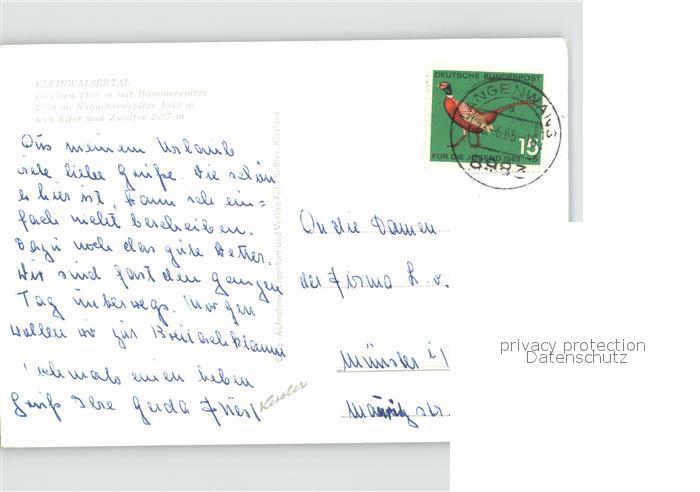 KLEINWALSERTAL
Riezlern 1100 m mit Hammerspitze
2169 m, Kühgehrenspitze 1913 m
und Elfer und Zwölfer 2387 m
Aus meinem Urlaub
viele liebe Grüße. Wie schön
es hier ist, kann ich ein=
fach nicht beschreiben.
Dazu noch das gute Wetter.
Wir sind fast den ganzen
Tag unterwegs. Morgen
wollen wir zur Breitachklamm
Nochmals einen lieben
Gruß Ihre Gerda
Kessler
DEUTSCHE BUNDESPOST
15
FÜR DIE JUGEND 1965 +5
LANGENWANG
An die Damen
der Firma L. v.
Münster i/
Mauritzstr.
privacy protection
Datenschutz